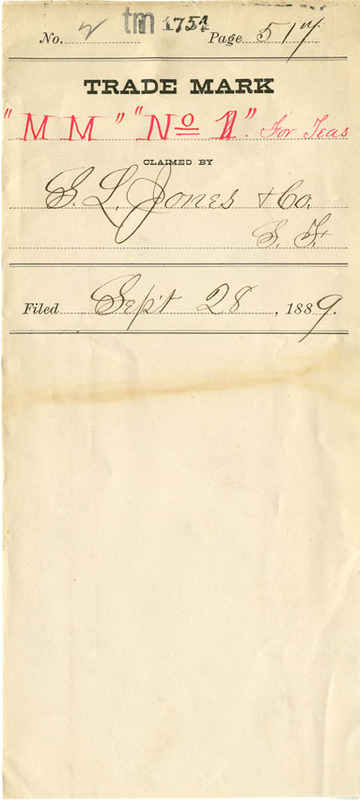 tm 1754
No. 2 Page 517
TRADE MARK
"MM" "No 1". For Teas
CLAIMED BY
S. L. Jones & Co.
S. F.
Filed Sep't 28, 1889.